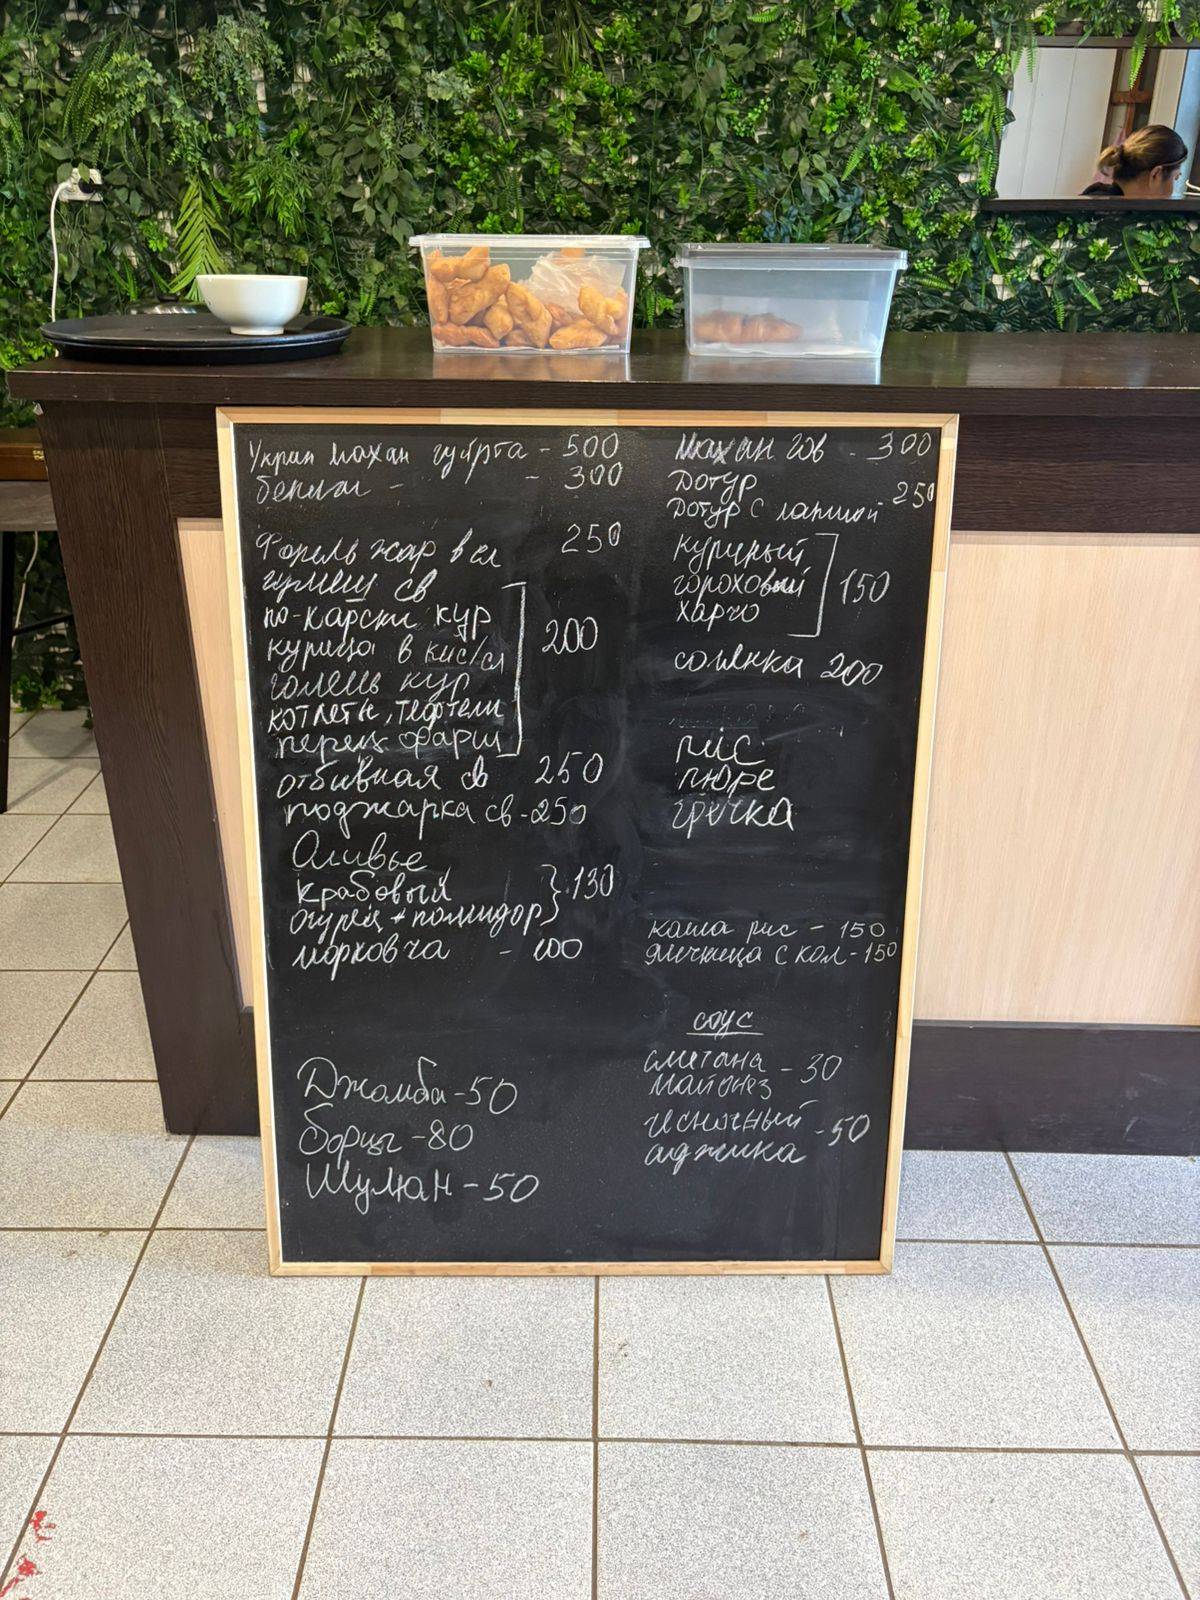 Укрин махан гуйрта - 500
бериги - - 300
Форель жар в сл 250
гуляш св
по-карски кур
курица в кис/сл 200
голень кур
котлеты, тефтели
перец фарш
отбивная св 250
поджарка св - 250
Оливье
крабовый 130
огурец + помидор
морковча - 100
Джомба - 50
Борцг - 80
Шулюн - 50
махан гов - 300
Дотур
Дотур с лапшой 250
куриный
гороховый 150
харчо
солянка 200
рис
пюре
гречка
каша рис - 150
яичница с кол - 150
соус
сметана
майонез - 30
чесночный
аджика - 50